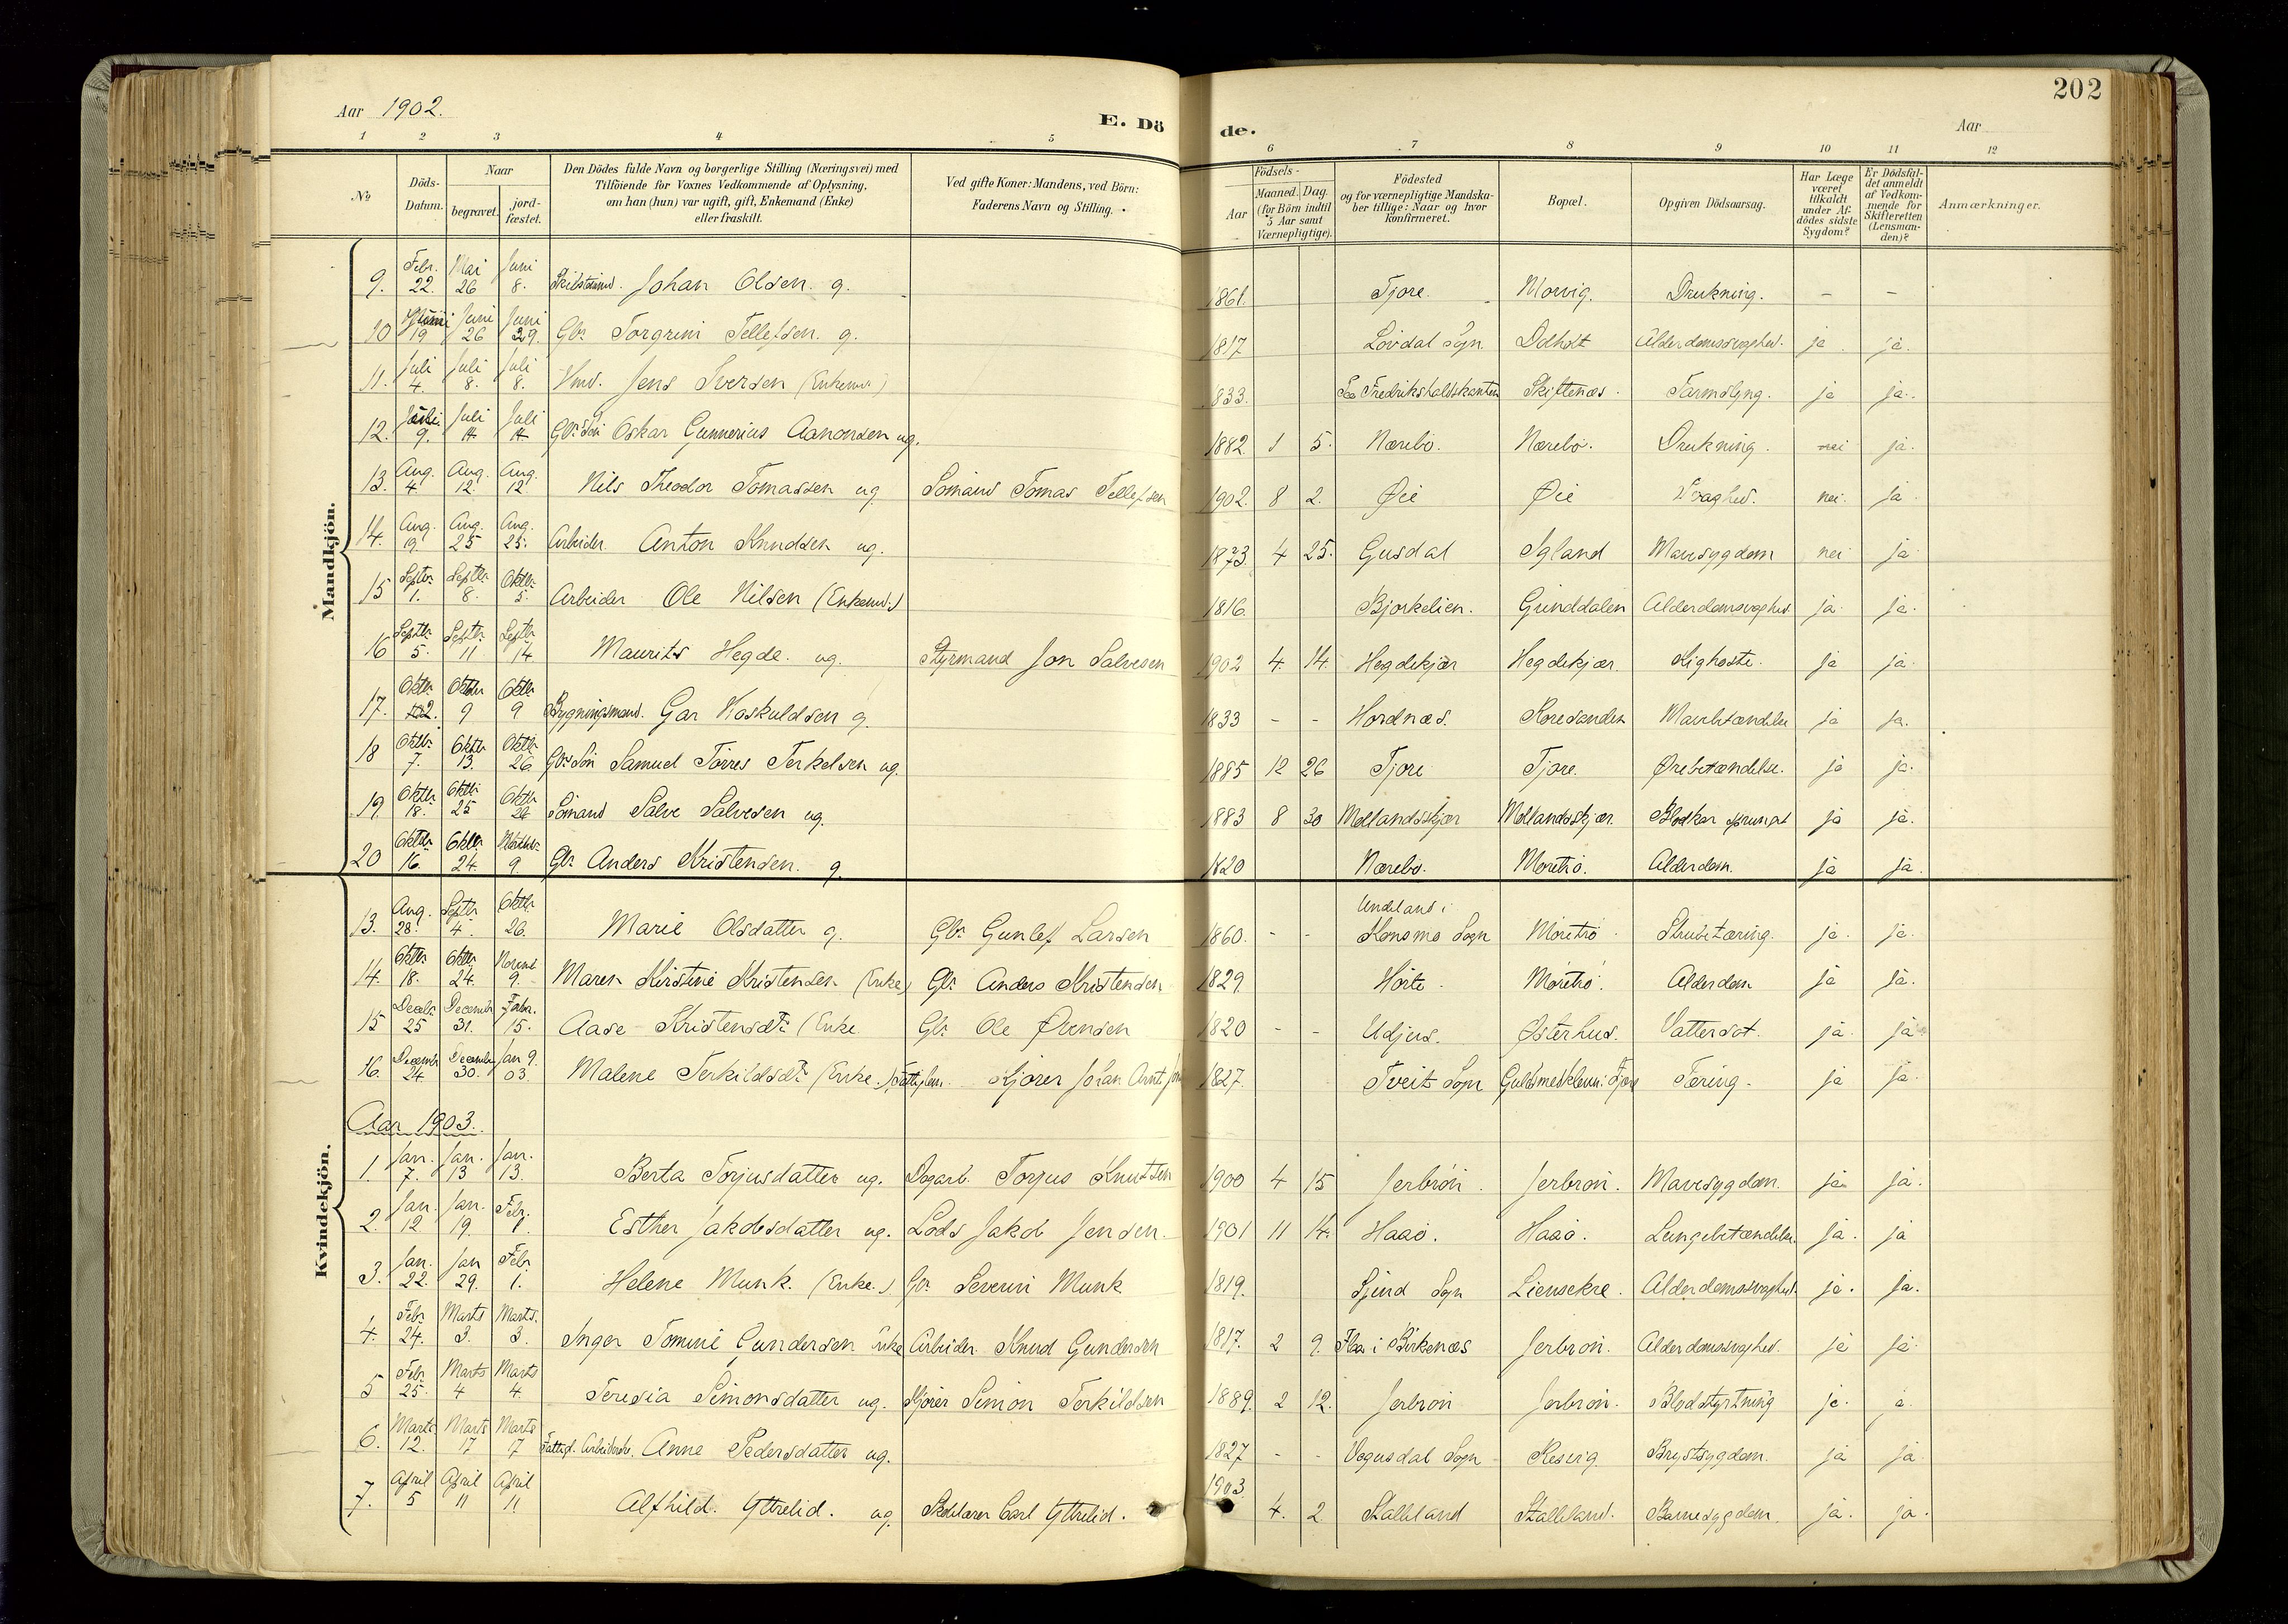 202
Aar 1902.
E. Dö de.
Aar
1 2 3 4 5 6 7 8 9 10 11 12
No
Döds-Datum.
Naar
begravet.
jord-fæstet.
Den Dödes fulde Navn og borgerlige Stilling (Næringsvei) med
Tilföiende for Voxnes Vedkommende af Oplysning,
om han (hun) var ugift, gift, Enkemand (Enke)
eller fraskilt.
Ved gifte Koner: Mandens, ved Börn:
Faderens Navn og Stilling.
Födsels-
Aar
Maaned. Dag.
(for Börn indtil
5 Aar samt
Værnepligtige).
Födested
og for værnepligtige Mandska-
ber tillige: Naar og hvor
konfirmeret.
Bopæl.
Opgiven Dödsaarsag.
Har Læge
været
tilkaldt
under Af-
dödes sidste
Sygdom?
Er Dödsfal-
det anmeldt
af Vedkom-
mende for
Skifteretten
(Lensman-
den)?
Anmærkninger.
Mandkjön.
9. Febr. 22. Mai 26 Juni 8. Johan Olsen. g. 1861. Tjore. Morvig. Drukning. – –
10 Juni 19 Juni 26 Juni 29. Gbr. Torgrim Tellefsen. g. 1817 Lövdal Sogn Dolholt Alderdomssvaghed. ja ja.
11. Juli 4. Juli 8. Juli 8. Jens Iversen (Enkem.) 1833. Fredrikshaldskanten Skiftenæs. Tarmslyng. ja ja.
12. Juli 9. Juli 14 Juli 14 Gbr. Sön Oskar Gunnerius Aanonsen ug. 1882 1 5. Nærebö. Nærebö. Drukning. nei ja.
13. Aug. 4 Aug. 12. Aug. 12 Nils Theodor Tomassen ug. Sömand Tomas Tellefsen 1902. 8 2. Øie Øie Svaghed. nei. ja
14. Aug. 19. Aug. 25 Aug. 25. Arbeider Anton Knudsen ug. 1873. 4 25. Gusdal Igland Mavesygdom nei ja
15 Septbr. 1. Septbr. 8. Oktbr. 5. Arbeider Ole Nilsen (Enkem.) 1816. Bjorkelien. Grinddalen Alderdomssvaghed. ja. ja.
16 Septbr. 5. Septbr. 11 Septbr. 14 Maurits Hegde. ug. Styrmand Jon Salvesen 1902 4. 14. Hegdekjær Hegdekjær. Kighoste. ja ja.
17. Oktbr. 2. Oktbr. 9 Oktbr. 9 Bygningsmand. Gar Haskuldsen g. 1833 – – Hordnæs. Koresanden Mavebetændelse ja ja.
18 Oktbr. 7. Oktbr. 13. Oktbr. 26 Gbr. Sön Samuel Törres Terkelsen ug. 1885 12 26 Tjore Tjore. Ørebetændelse. ja ja.
19. Oktbr. 18. Oktbr. 25 Oktbr. 26 Sömand Salve Salvesen ug. 1883 8 30 Mollandsskjær Mollandsskjær. Blodkar sprunget ja ja.
20 Oktbr. 16. Oktbr. 24. 9 Gbr. Anders Kristensen. g. 1820 Nærebö. Moretrö. Alderdom. ja ja.
Kvindekjön.
13. Aug. 28. Septbr. 4. Oktbr. 26. Marie Olsdatter g. Gbr. Gunlef Larsen 1860. – – Undeland i Konsmo Sogn Möretrö. Strubetæring. ja. ja.
14. Oktbr. 18. Oktbr. 24. Novembr. 9. Maren Kirstine Kristensen (Enke) Gbr. Anders Kristensen 1829. Hörte Möretrö. Alderdom ja ja.
15 Decbr. 25 Decembr. 31. Febr. 15. Aase Kristensdtr. (Enke. Gbr. Ole Evensen 1820 – – Udjus. Østerhus. Vattersot. ja. ja
16. Decembr. 24 Decembr. 30. Jan 9. 03. Malene Terkildsdtr. (Enke.) Fattiglem. Kjörer Johan Arnt 1827. Tveit Sogn Tæring. ja ja.
Aar 1903.
1. Jan. 7. Jan. 13 Jan. 13. Berta Torjusdatter ug. Dagarb. Torjus Knutsen 1900 4 15 Jerbrön. Jerbrön. Mavesygdom. ja ja.
2. Jan. 12 Jan. 19. Febr. 1. Esther Jakobsdatter ug. Lods Jakob Jensen. 1901 11 14. Haaö. Haaö. Lungebetændelse. ja. ja
3. Jan. 22. Jan 29. Febr. 1. Helene Munk. (Enke.) Gbr. Severin Munk 1819. Sogn Liensekre. Alderdomssvaghed. ja. ja.
4. Febr. 24. Marts 3. Marts. 3. Inger Tomine Gundersen Enke Arbeider Knud Gundersen 1817. 2 9. Flaa i Birkenæs Jerbrön. Alderdomssvaghed. ja ja
5 Febr. 25. Marts 4 Marts 4. Teresia Simonsdatter ug. Kjörer Simon Terkildsen 1889. 2 12. Jerbrön Jerbrön. Blodstyrtning ja. ja.
6. Marts 12. Marts 17 Marts 17 Fattigl. Arbeiderske. Anne Pedersdatter ug. 1827 – – Vegusdal Sogn Resvig. Brystsygdom. ja ja
7. April 5 April 11 April 11. Alfhild. Yttrelid. ug. Skolelærer Carl Yttrelid. 1903. 4. 2 Stalleland Stalleland. Barnesygdom. ja. ja.